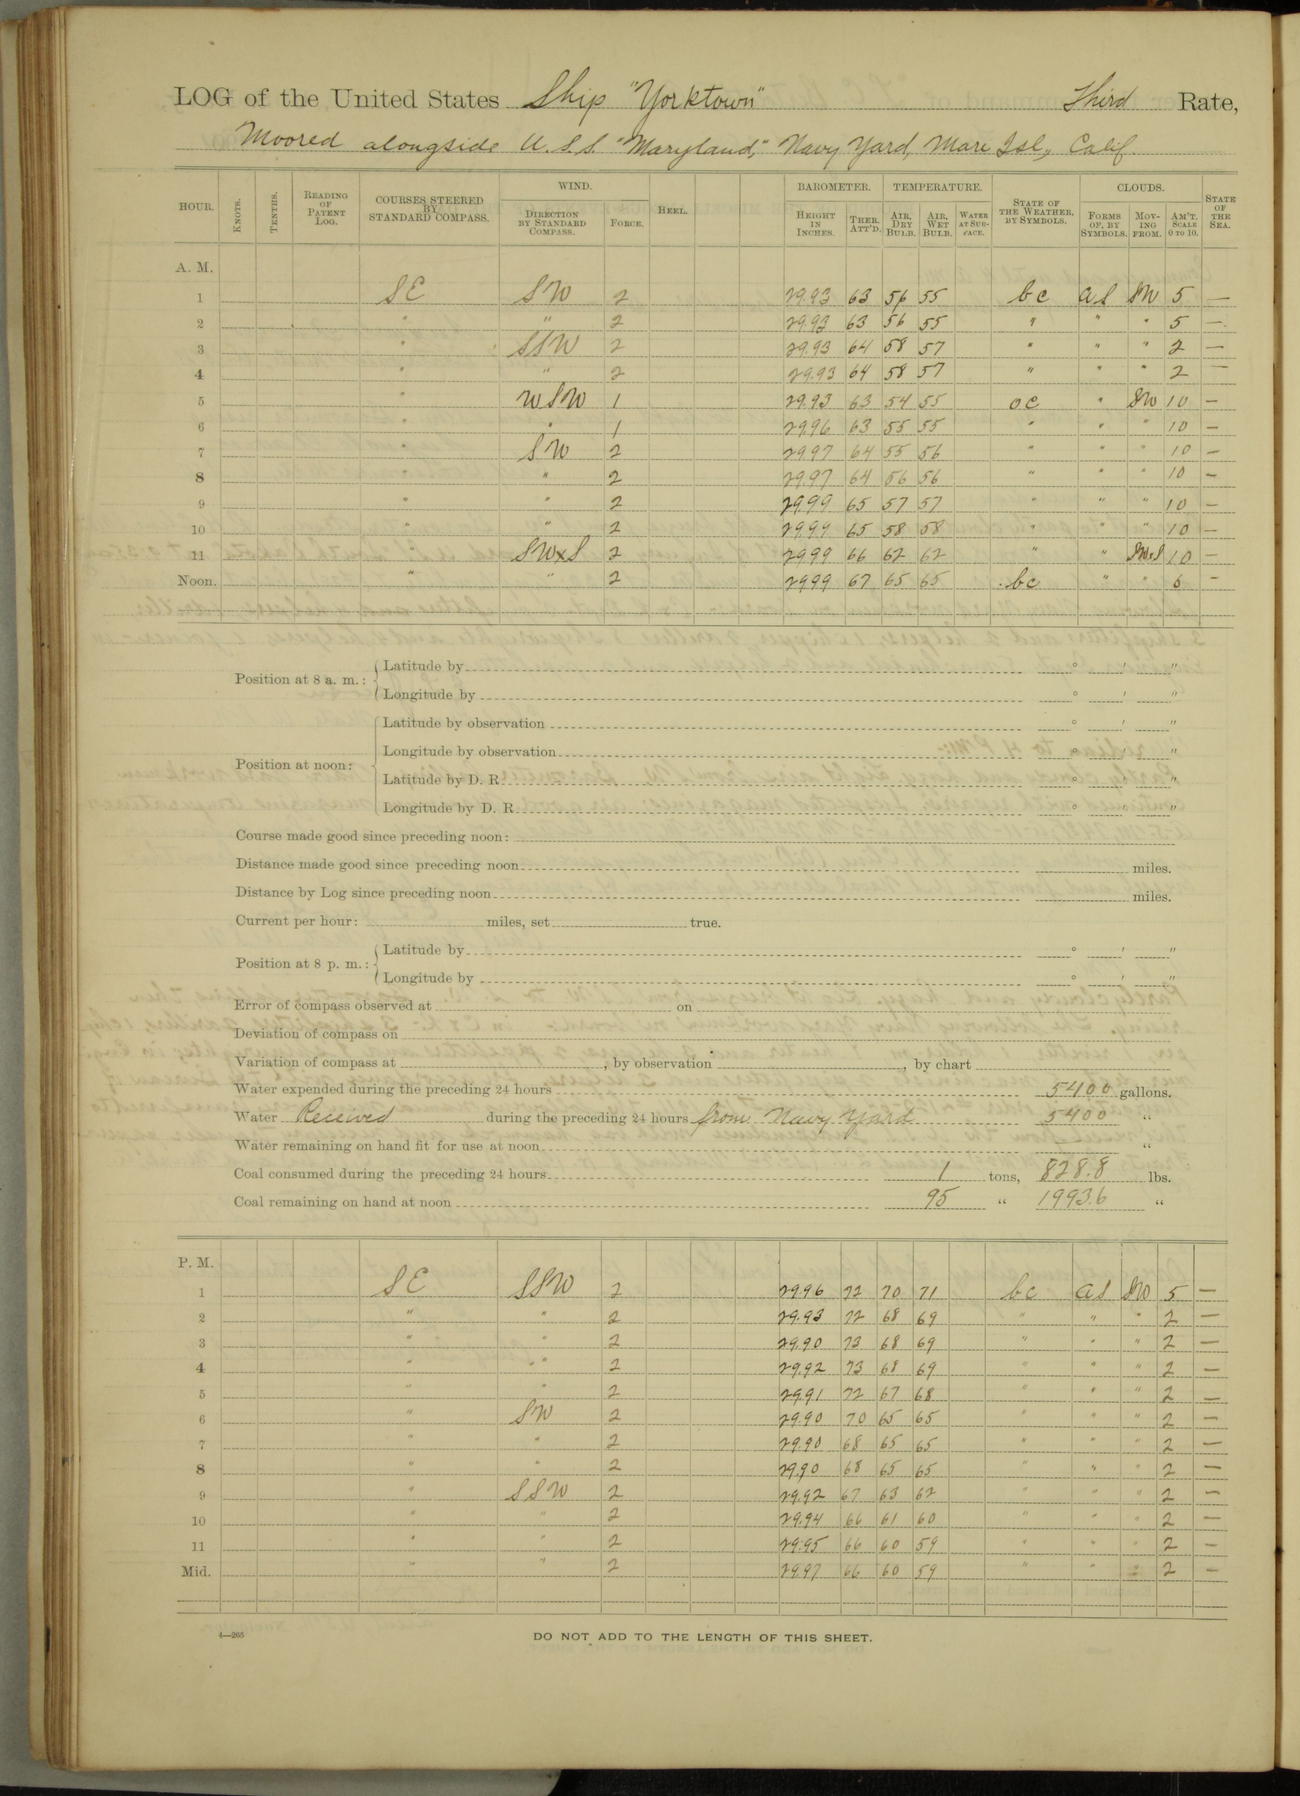 LOG of the United States Ship "Yorktown" Third Rate,
Moored alongside U.S.S. "Maryland," Navy Yard, Mare Isl, Calif.
HOUR. KNOTS. TENTHS. READING OF PATENT LOG. COURSES STEERED BY STANDARD COMPASS. WIND. DIRECTION BY STANDARD COMPASS. FORCE. HEEL. BAROMETER. HEIGHT IN INCHES. THER. ATT'D. TEMPERATURE. AIR, DRY BULB. AIR, WET BULB. WATER AT SURFACE. STATE OF THE WEATHER, BY SYMBOLS. CLOUDS. FORMS OF, BY SYMBOLS. MOVING FROM. AM'T. SCALE 0 TO 10. STATE OF THE SEA.
A. M.
1 SE SW 2 29.93 63 56 55 bc as SW 5 —
2 " " 2 29.93 63 56 55 " " " 5 —
3 " SSW 2 29.93 64 58 57 " " " 2 —
4 " " 2 29.93 64 58 57 " " " 2 —
5 " WSW 1 29.93 63 54 55 oc " SW 10 —
6 " " 1 29.96 63 55 55 " " " 10 —
7 " SW 2 29.97 64 55 56 " " " 10 —
8 " " 2 29.97 64 56 56 " " " 10 —
9 " " 2 29.99 65 57 57 " " " 10 —
10 " " 2 29.99 65 58 58 " " " 10 —
11 " SWxS 2 29.99 66 62 62 " " SWxS 10 —
Noon. " " 2 29.99 67 65 65 bc " " 6 —
Position at 8 a. m.: Latitude by ° ′ ″
Longitude by ° ′ ″
Position at noon: Latitude by observation ° ′ ″
Longitude by observation ° ′ ″
Latitude by D. R. ° ′ ″
Longitude by D. R. ° ′ ″
Course made good since preceding noon:
Distance made good since preceding noon miles.
Distance by Log since preceding noon miles.
Current per hour: miles, set true.
Position at 8 p. m.: Latitude by ° ′ ″
Longitude by ° ′ ″
Error of compass observed at on
Deviation of compass on
Variation of compass at , by observation , by chart
Water expended during the preceding 24 hours 5400 gallons.
Water Received during the preceding 24 hours from Navy Yard 5400 "
Water remaining on hand fit for use at noon "
Coal consumed during the preceding 24 hours 1 tons, 828.8 lbs.
Coal remaining on hand at noon 95 " 1993.6 "
P. M.
1 SE SSW 2 29.96 72 70 71 bc as SW 5 —
2 " " 2 29.93 72 68 69 " " " 2 —
3 " " 2 29.90 73 68 69 " " " 2 —
4 " " 2 29.92 73 68 69 " " " 2 —
5 " " 2 29.91 72 67 68 " " " 2 —
6 " SW 2 29.90 70 65 65 " " " 2 —
7 " " 2 29.90 68 65 65 " " " 2 —
8 " " 2 29.90 68 65 65 " " " 2 —
9 " SSW 2 29.92 67 63 62 " " " 2 —
10 " " 2 29.94 66 61 60 " " " 2 —
11 " " 2 29.95 66 60 59 " " " 2 —
Mid. " " 2 29.97 66 60 59 " " " 2 —
4—265
DO NOT ADD TO THE LENGTH OF THIS SHEET.